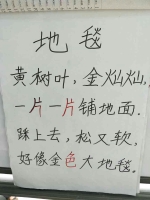 地毯
黄树叶,金灿灿,
一片一片铺地面.
踩上去,松又软,
好像金色大地毯.